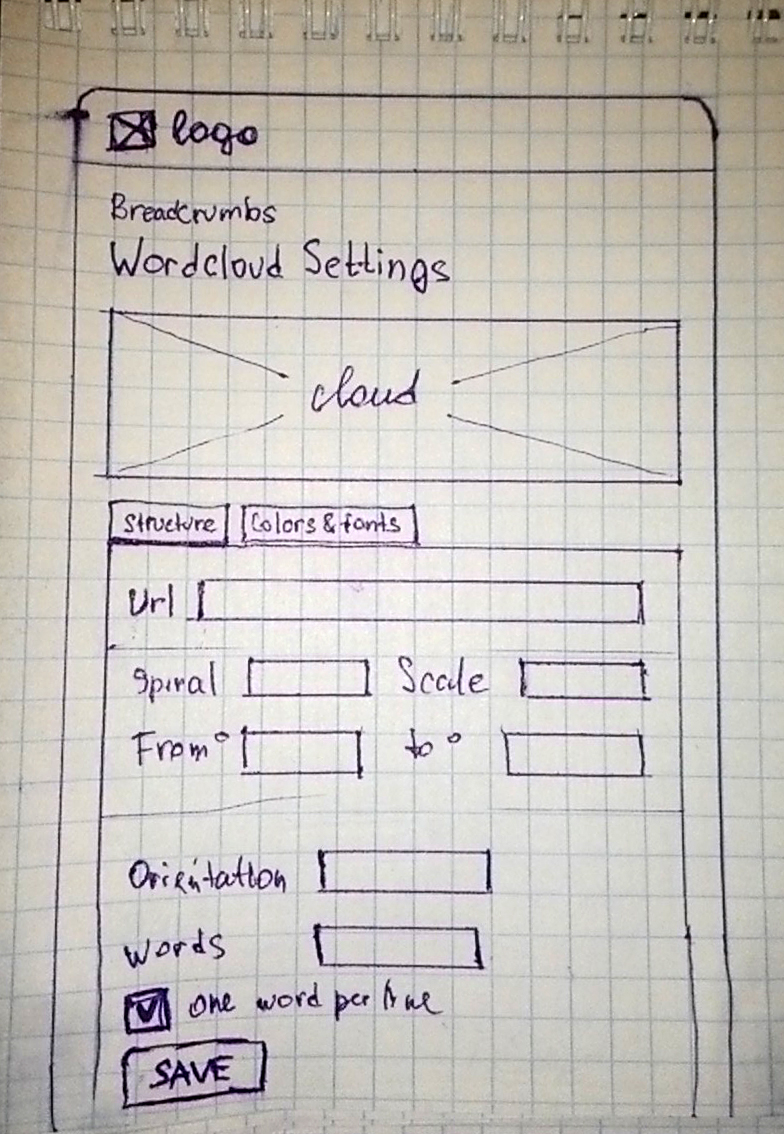 logo
Breadcrumbs
Wordcloud Settings
cloud
Structure Colors & fonts
Url
Spiral Scale
From° to°
Orientation
Words
one word per line
SAVE